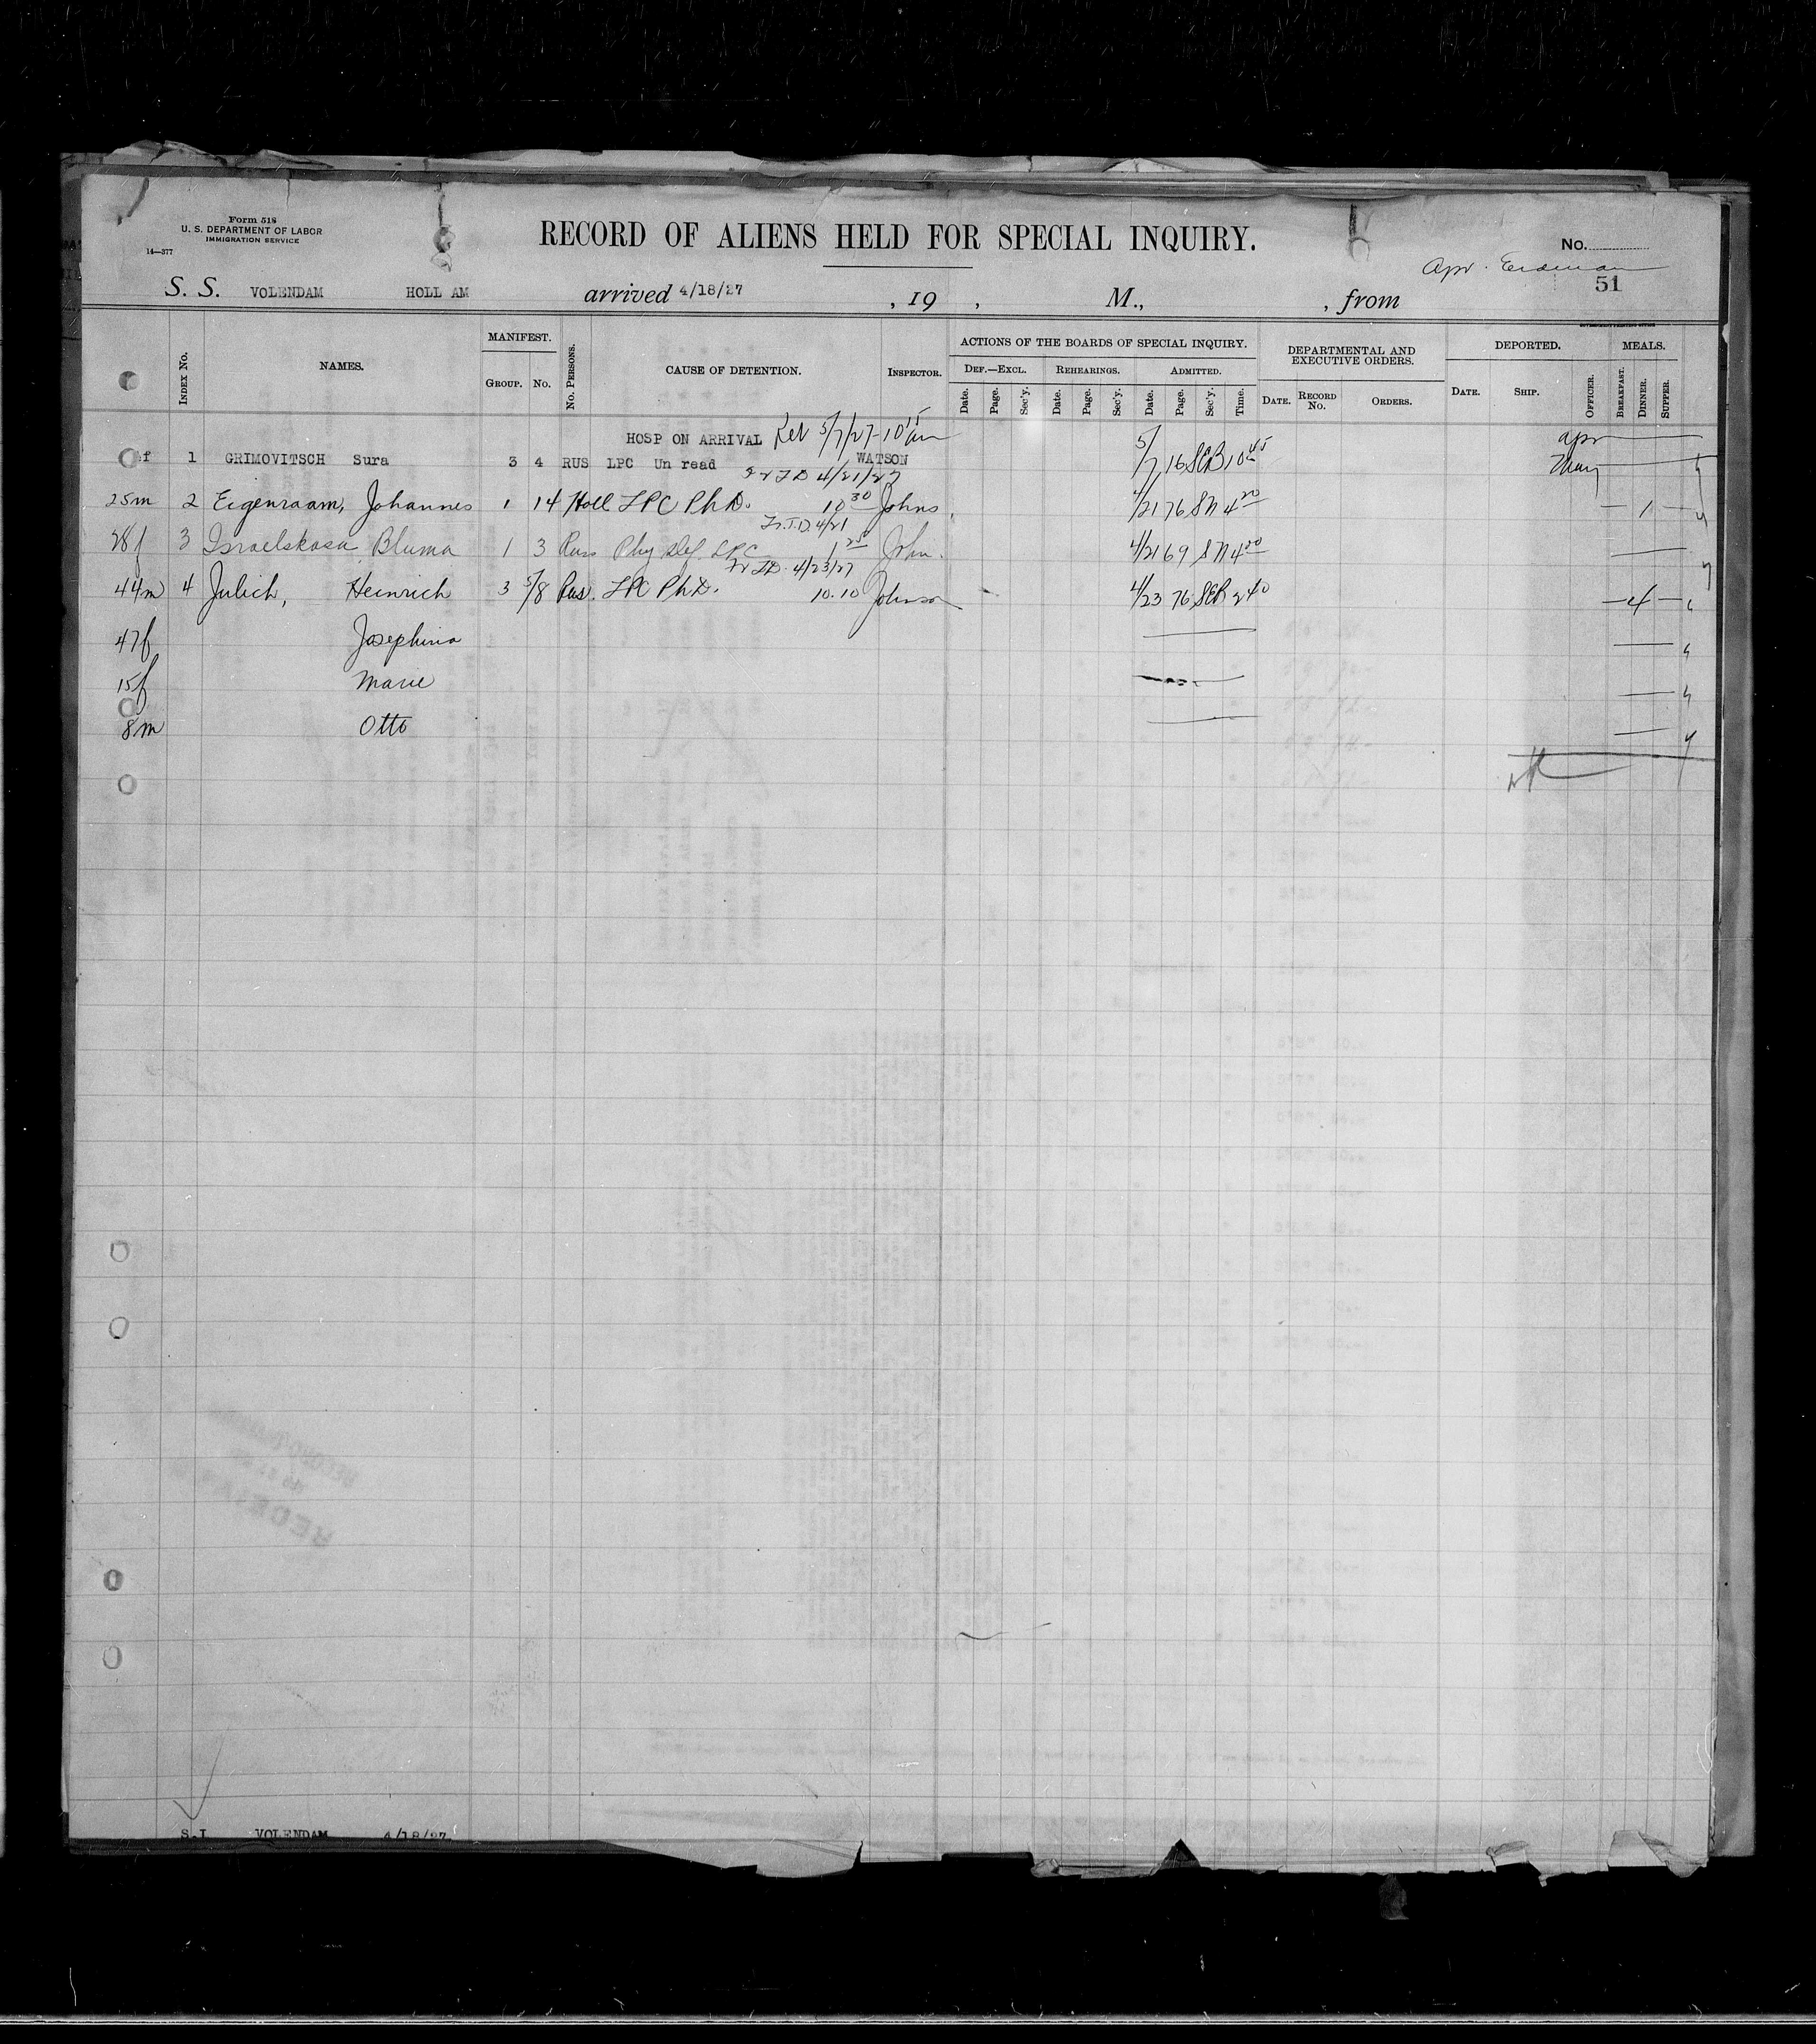 Form 518
U. S. DEPARTMENT OF LABOR
IMMIGRATION SERVICE
14—377
RECORD OF ALIENS HELD FOR SPECIAL INQUIRY.
No.
Apr.
51
S. S. VOLENDAM HOLL AM arrived 4/18/27, 19 , M., , from
INDEX No. NAMES. MANIFEST. GROUP. No. No. PERSONS. CAUSE OF DETENTION. INSPECTOR. ACTIONS OF THE BOARDS OF SPECIAL INQUIRY. DEPARTMENTAL AND EXECUTIVE ORDERS. DEPORTED. MEALS.
DEF.—EXCL. REHEARINGS. ADMITTED.
Date. Page. Sec'y. Date. Page. Sec'y. Date. Page. Sec'y. Time. DATE. RECORD No. ORDERS. DATE. SHIP. OFFICER. BREAKFAST. DINNER. SUPPER.
HOSP ON ARRIVAL Rel 5/7/27-10 15 am Apr
f 1 GRIMOVITSCH Sura 3 4 RUS LPC Un read WATSON 5/7 16 SEB 10 45 May
TD 4/21/27
25m 2 Eigenraam, Johannes 1 14 Holl LPC Ph D. 10 30 Johns. 4/21 76 SN 4 20 — 1 —
Fr. T.D. 4/21
28f 3 Israelskasa Bluma 1 3 Russ Phy Def. LPC 1 25 John. 4/21 69 SN 4 20
Fr TD. 4/23/27
44m 4 Julich, Heinrich 3 5/8 Rus. LPC Ph D. 10.10 Johnson 4/23 76 SEB 2 40 — 4 —
47f Josephina
15f Marie
8m Otto
S.I VOLENDAM 4/18/27